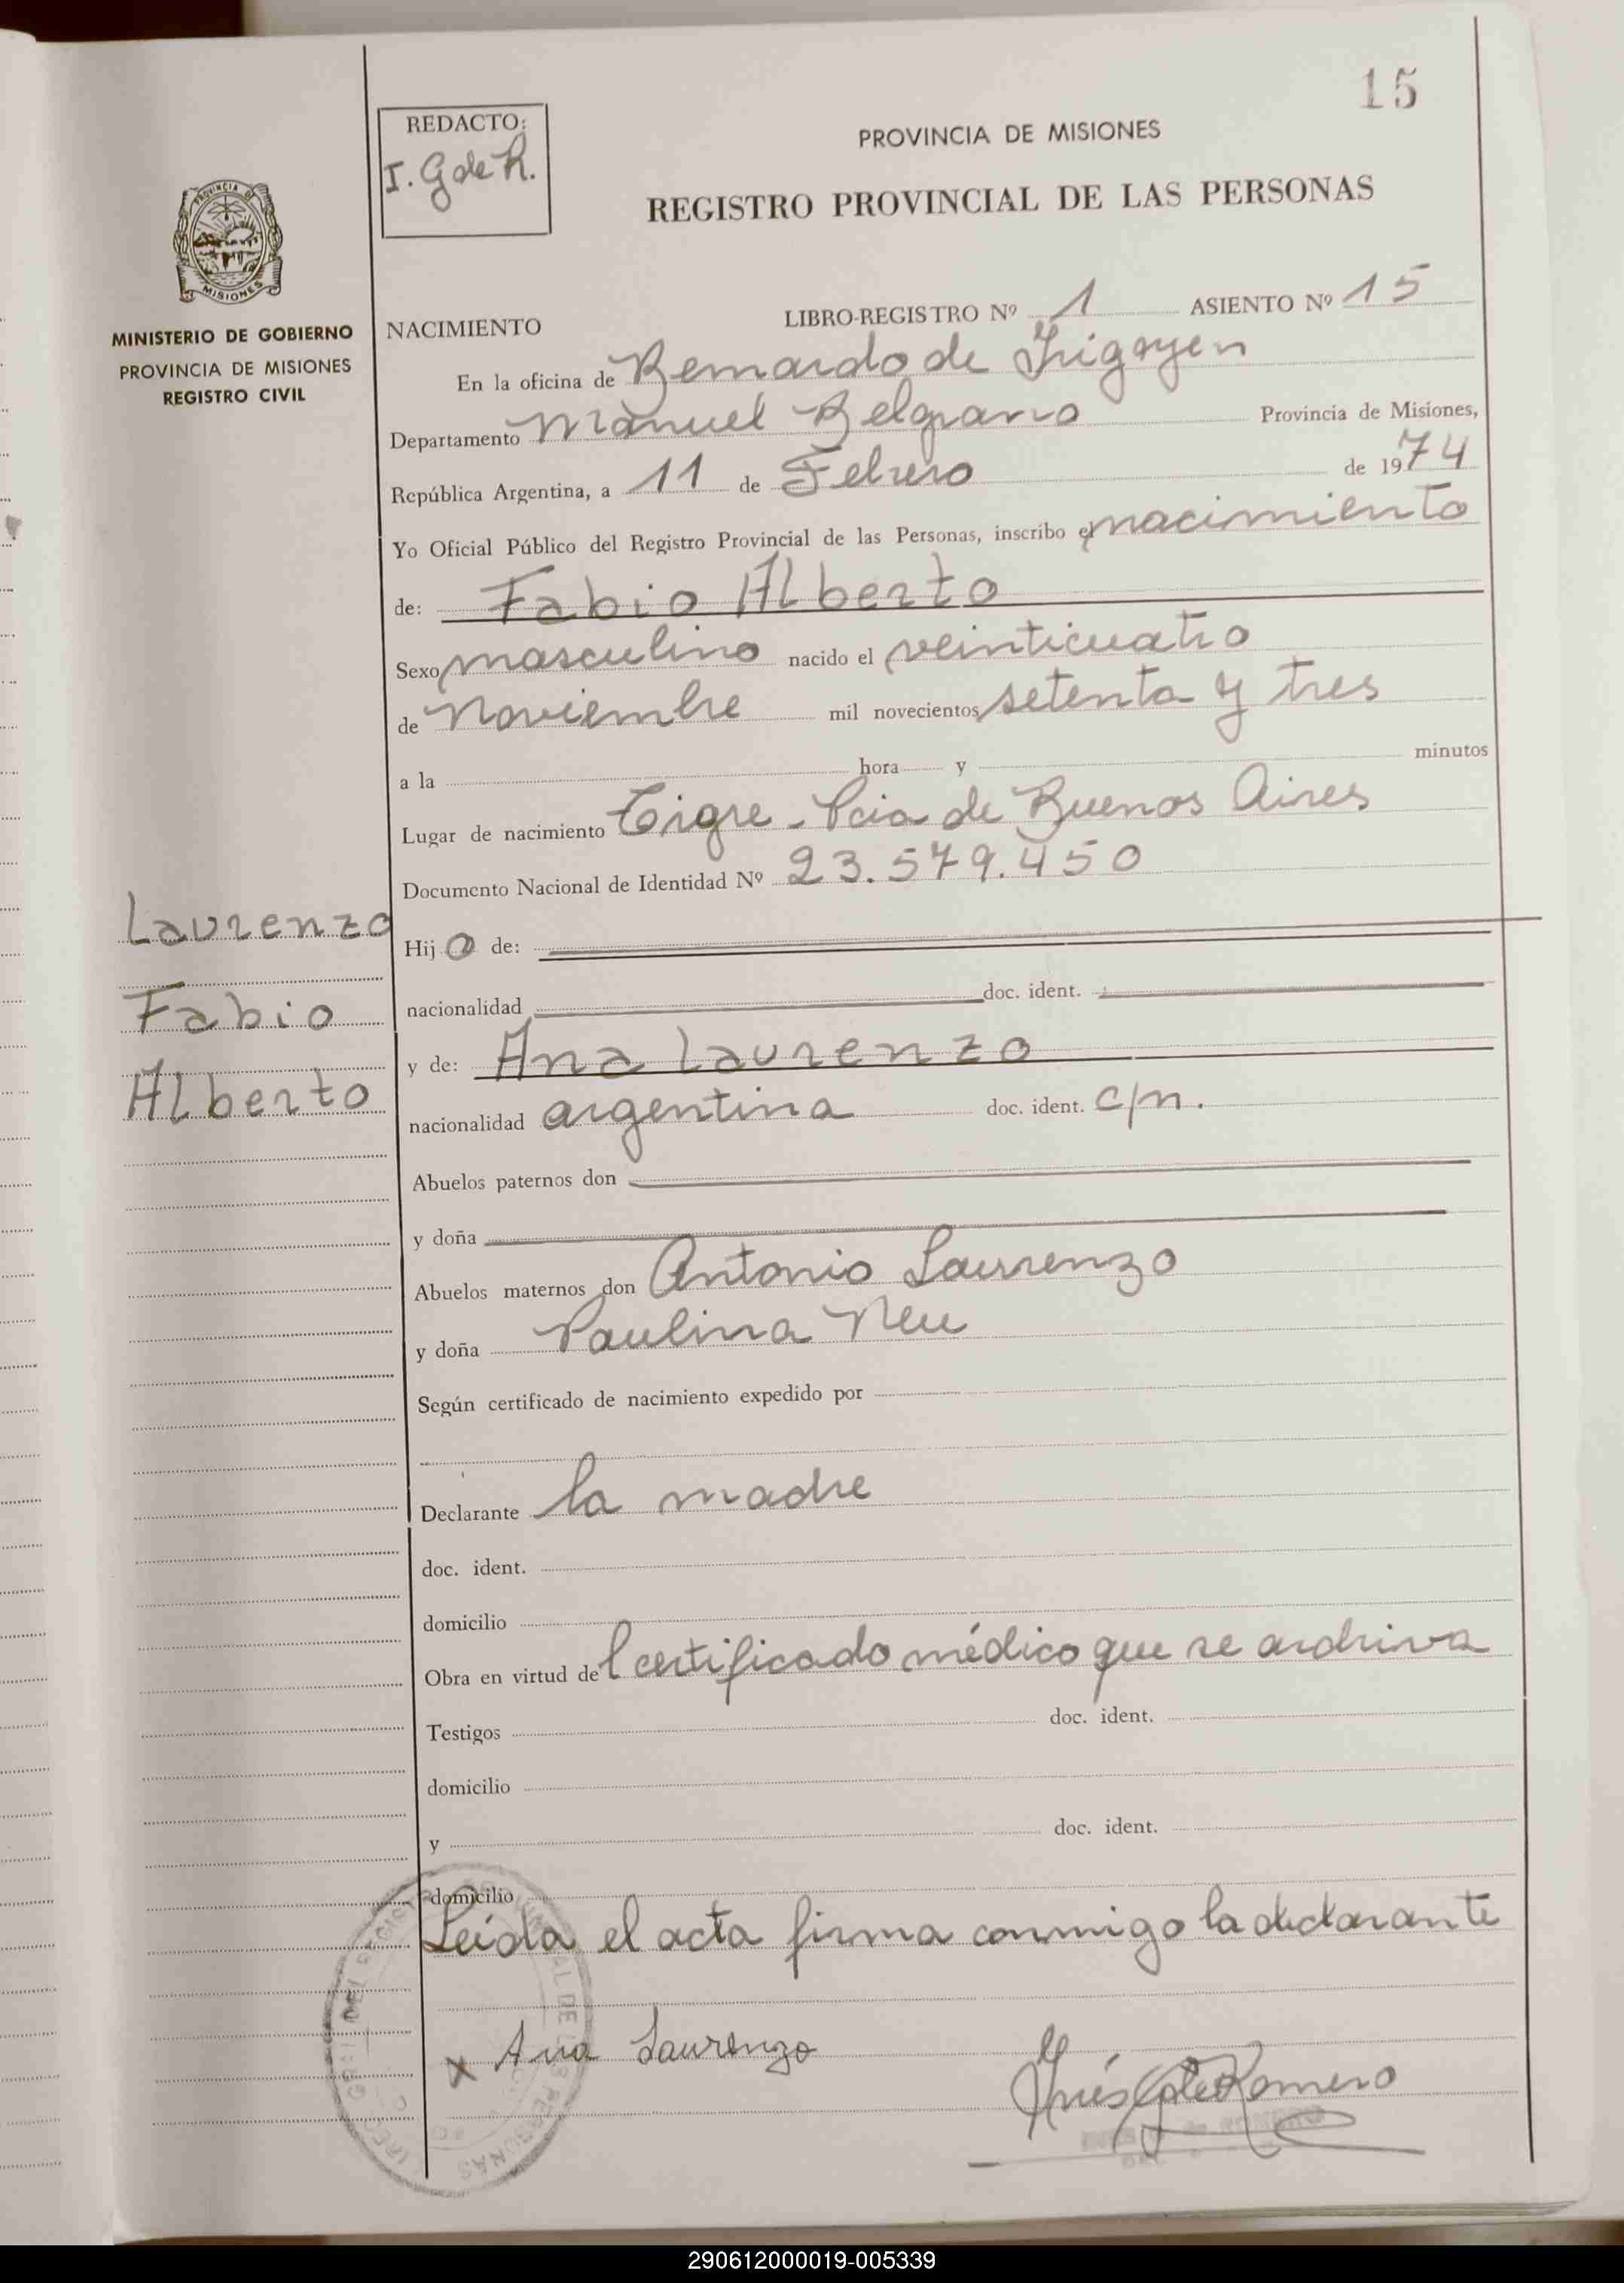 15
REDACTO:
I. G de R.
PROVINCIA DE MISIONES
REGISTRO PROVINCIAL DE LAS PERSONAS
PROVINCIA DE
MISIONES
MINISTERIO DE GOBIERNO
PROVINCIA DE MISIONES
REGISTRO CIVIL
NACIMIENTO LIBRO-REGISTRO Nº 1 ASIENTO Nº 15
En la oficina de Bernardo de Irigoyen
Departamento Manuel Belgrano Provincia de Misiones,
República Argentina, a 11 de Febrero de 1974
Yo Oficial Público del Registro Provincial de las Personas, inscribo el nacimiento
de: Fabio Alberto
Sexo masculino nacido el veinticuatro
de Noviembre mil novecientos setenta y tres
a la hora y minutos
Lugar de nacimiento Tigre - Pcia de Buenos Aires
Documento Nacional de Identidad Nº 23.579.450
Laurenzo
Fabio
Alberto
Hijo de:
nacionalidad doc. ident.
y de: Ana Laurenzo
nacionalidad argentina doc. ident. c/n.
Abuelos paternos don
y doña
Abuelos maternos don Antonio Laurenzo
y doña Paulina Neu
Según certificado de nacimiento expedido por
Declarante la madre
doc. ident.
domicilio
Obra en virtud del certificado médico que se archiva
Testigos doc. ident.
domicilio
y doc. ident.
domicilio
Leída el acta firma conmigo la declarante
x Ana Laurenzo
Inés G de Romero
290612000019-005339